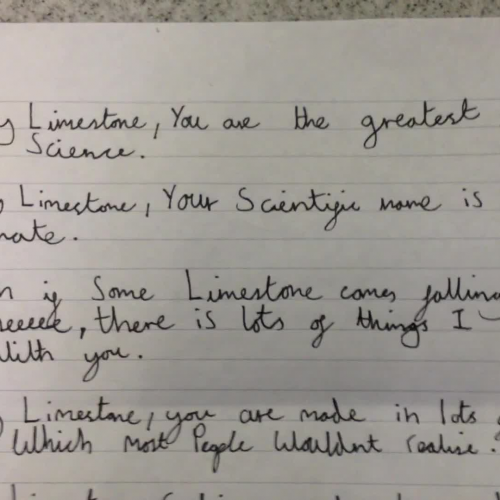 Limestone, You are the greatest
Science.
Limestone, Your Scientific name is
nate.
if Some Limestone comes falling
eeeee, there is lots of things I
With you.
Limestone, you are made in lots
Which most People Wouldnt realise.